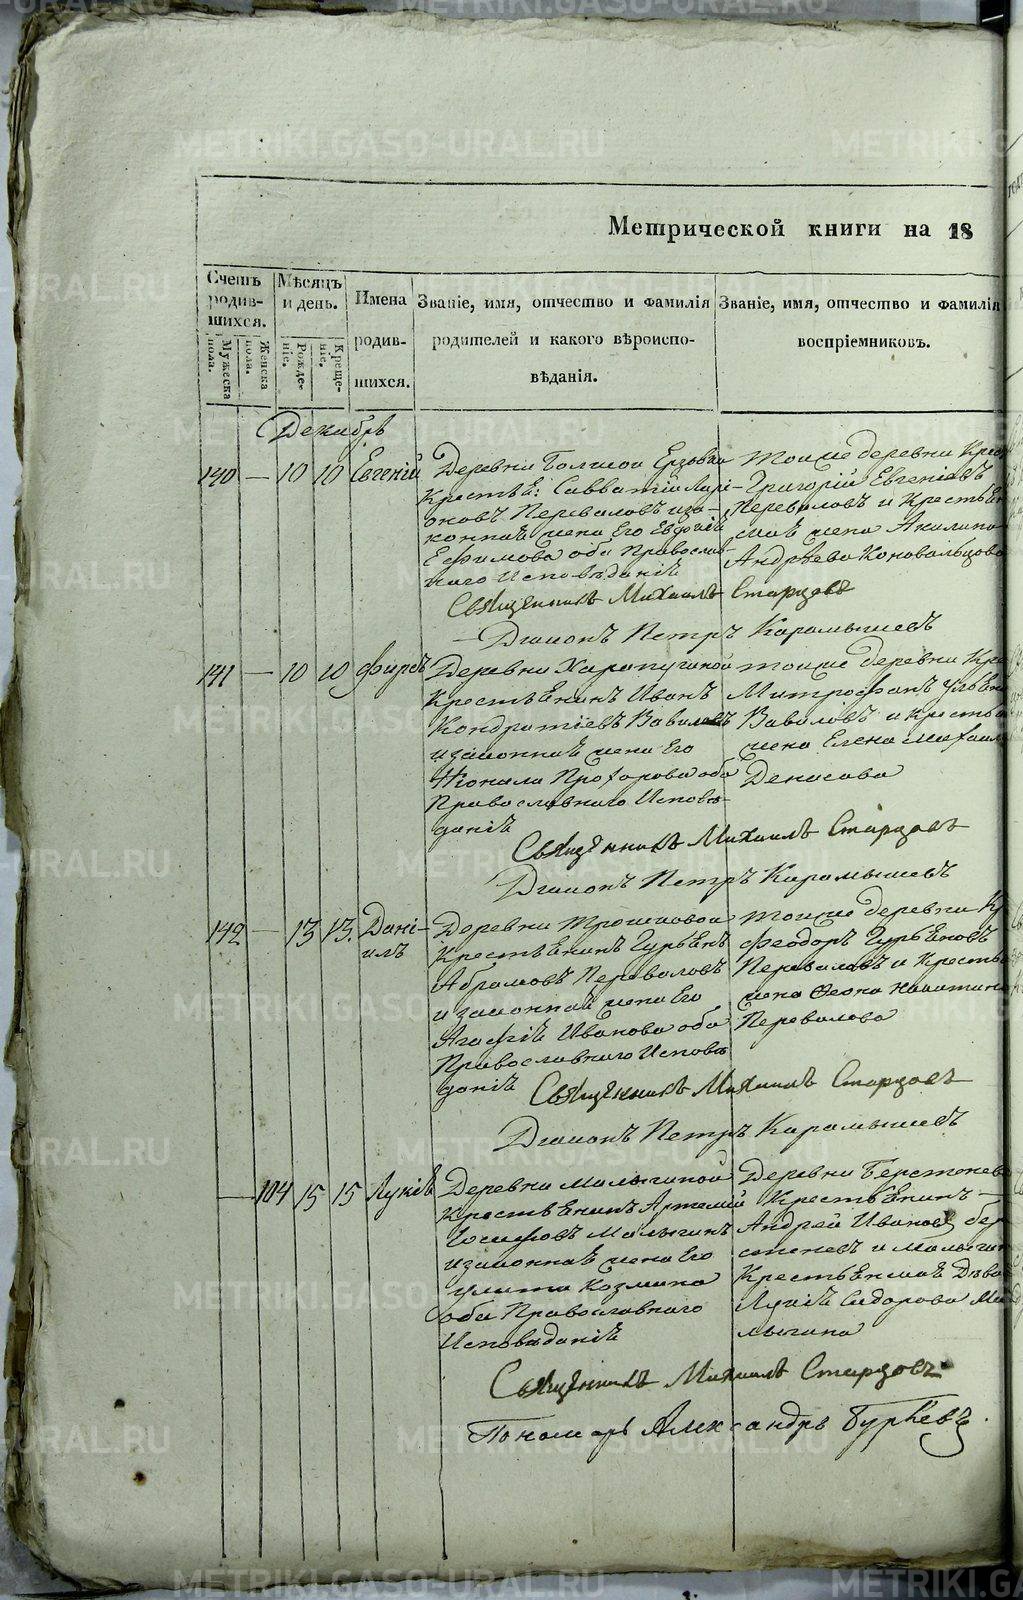 Метрической книги на 18
Счетъ родив-шихся.
Мужеска пола.
Женска пола.
Мѣсяцъ и день.
Рожде-ніе.
Креще-ніе.
Имена родив-шихся.
Званіе, имя, отчество и фамилія
родителей и какого вѣроиспо-
вѣданія.
Званіе, имя, отчество и фамилія
воспріемниковъ.
Декабрь
140 — 10 10 Евгеній
Деревни Ерзовки
Крестьен: Савватій Лари-
оновъ Переваловъ иза-
конная жена Его Евдокія
Ефимова оба Православ-
наго Исповѣданія
тоиже деревни
Григорій Евгеніевъ
Переваловъ и Крестьен
жена Акилина
Андрѣева Коновальцова
Священникъ Михаилъ Старцовъ
Діаконъ Петръ Карамышевъ
141 — 10 10 Фирсъ
Деревни Харапугиной
Крестьенинъ Иванъ
Кондратіевъ Вавиловъ
изаконная жена Его
Прохорова оба
Православнаго Исповѣ-
данія
тоиже деревни
Митрофанъ
Вавиловъ и Кресть
жена Елена Михаил
Денисова
Священникъ Михаилъ Старцовъ
Діаконъ Петръ Карамышевъ
142 — 13 13. Дані-
илъ
Деревни Трошковой
Крестьенинъ Гурьенъ
Абрамовъ Переваловъ
изаконная жена Его
Агафія Иванова оба
Православнаго Исповѣ
данія
тоиже деревни Кр
Феодоръ Гурьеновъ
Переваловъ и Кресть
жена Никитина
Перевалова
Священникъ Михаилъ Старцовъ
Діаконъ Петръ Карамышевъ
— 104 15 15 Лукія
Деревни Малыгиной
Крестьенинъ Артемій
Іосифовъ Малыгинъ
изаконная жена Его
улита Козмина
оба Православнаго
Исповѣданія
Деревни Берстенева
Крестьенинъ —
Андрей Ивановъ бер
стеневъ и Малыгин
Крестьенская Дѣва
Лукія Сидорова Ма
лыгина
Священникъ Михаилъ Старцовъ
Пономарь Александръ Гурьевъ.
METRIKI.GASO-URAL.RU